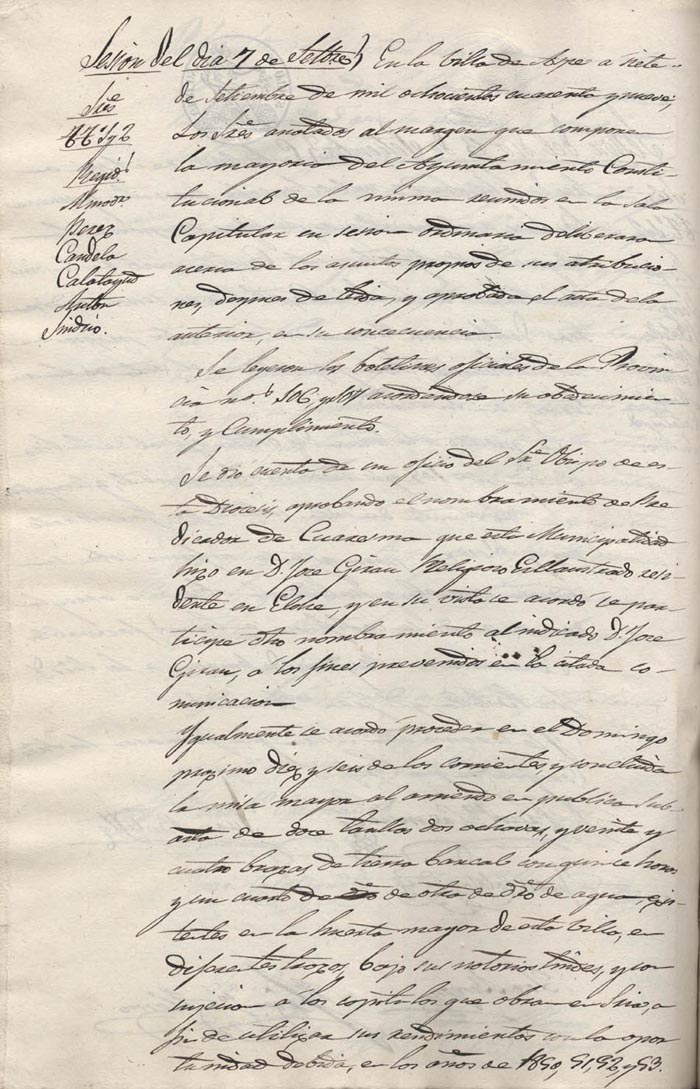 Sesion del dia 7 de Setbre) En la Villa de Aspe a siete
de Setiembre de mil ochocientos cuarenta y nueve;
Sres
Los Sres anotados al margen que compone
la mayoria del Ayuntamiento Consti-
Regid.s
tucional de la misma reunidos en la Sala
Perez
Capitular en sesion ordinaria deliberaron
Candela
acerca de los asuntos propios de sus atribucio-
Calatayud
nes, despues de leida, y aprobada el acta de la
Anton
anterior, en su concecuencia
Sindico.
Se leyeron los boletines oficiales de la Provin
cia n.os 106, y 107 acordandose su obedecimien
to, y Cumplimiento.
Se dió cuenta de un oficio del Sr Obispo de es-
ta Diocesis, aprobando el nombramiento de Pre
dicador de Cuaresma que esta Municipalidad
hizo en D. Jose Girau Religioso Esclaustrado resi
dente en Elche, y en su vista se acordó se par-
ticipe dho nombramiento al indicado D. Jose
Girau, a los fines prevenidos en la citada co-
municacion
Ygualmente se acordó proceder en el Domingo
proximo diez y seis de los corrientes, y concluida
la misa mayor al arriendo en publica Sub-
asta de doce taullas dos ochavas, y veinte y
cuatro brazas de tierra bancal con quince horas
y un cuarto de otra de dro de agua, exis-
tentes en la huerta mayor de esta Villa, en
diferentes trozos, bajo sus notorios lindes, y con
sujecion a los capitulos que obran en Srio, a
fin de utilizar sus rendimientos con la opor
tunidad debida, en los años de 1850, 51, 52, y 53.